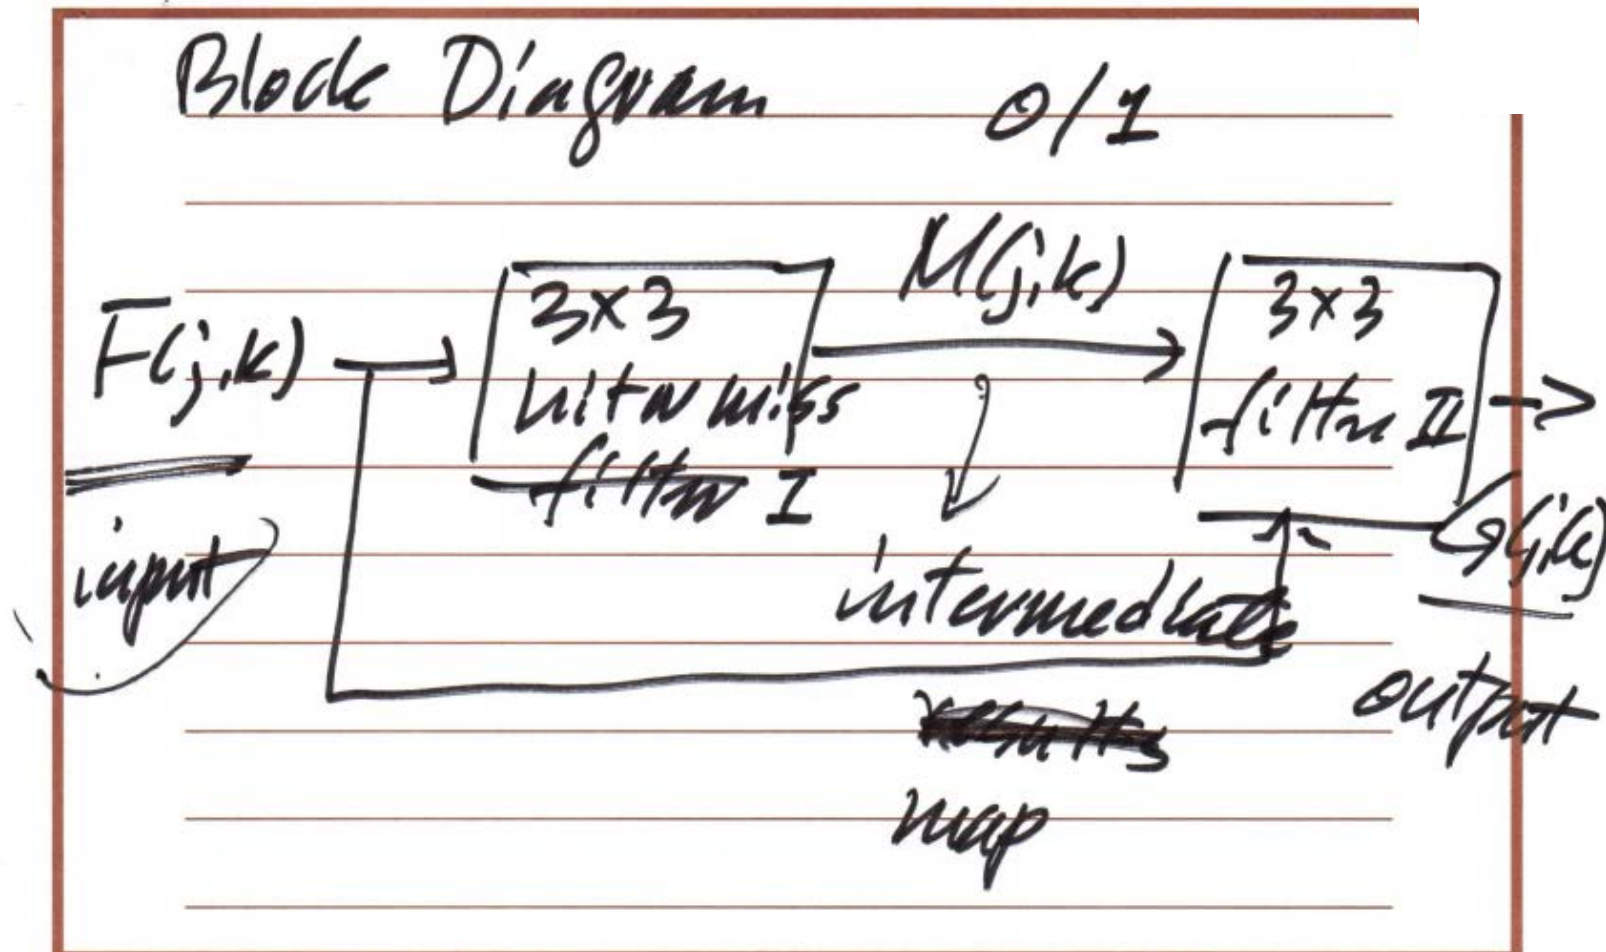 Block Diagram 0/1
F(j,k)
input
3×3
hit or miss
filter I
M(j,k)
intermediate
map
3×3
filter II
G(j,k)
output